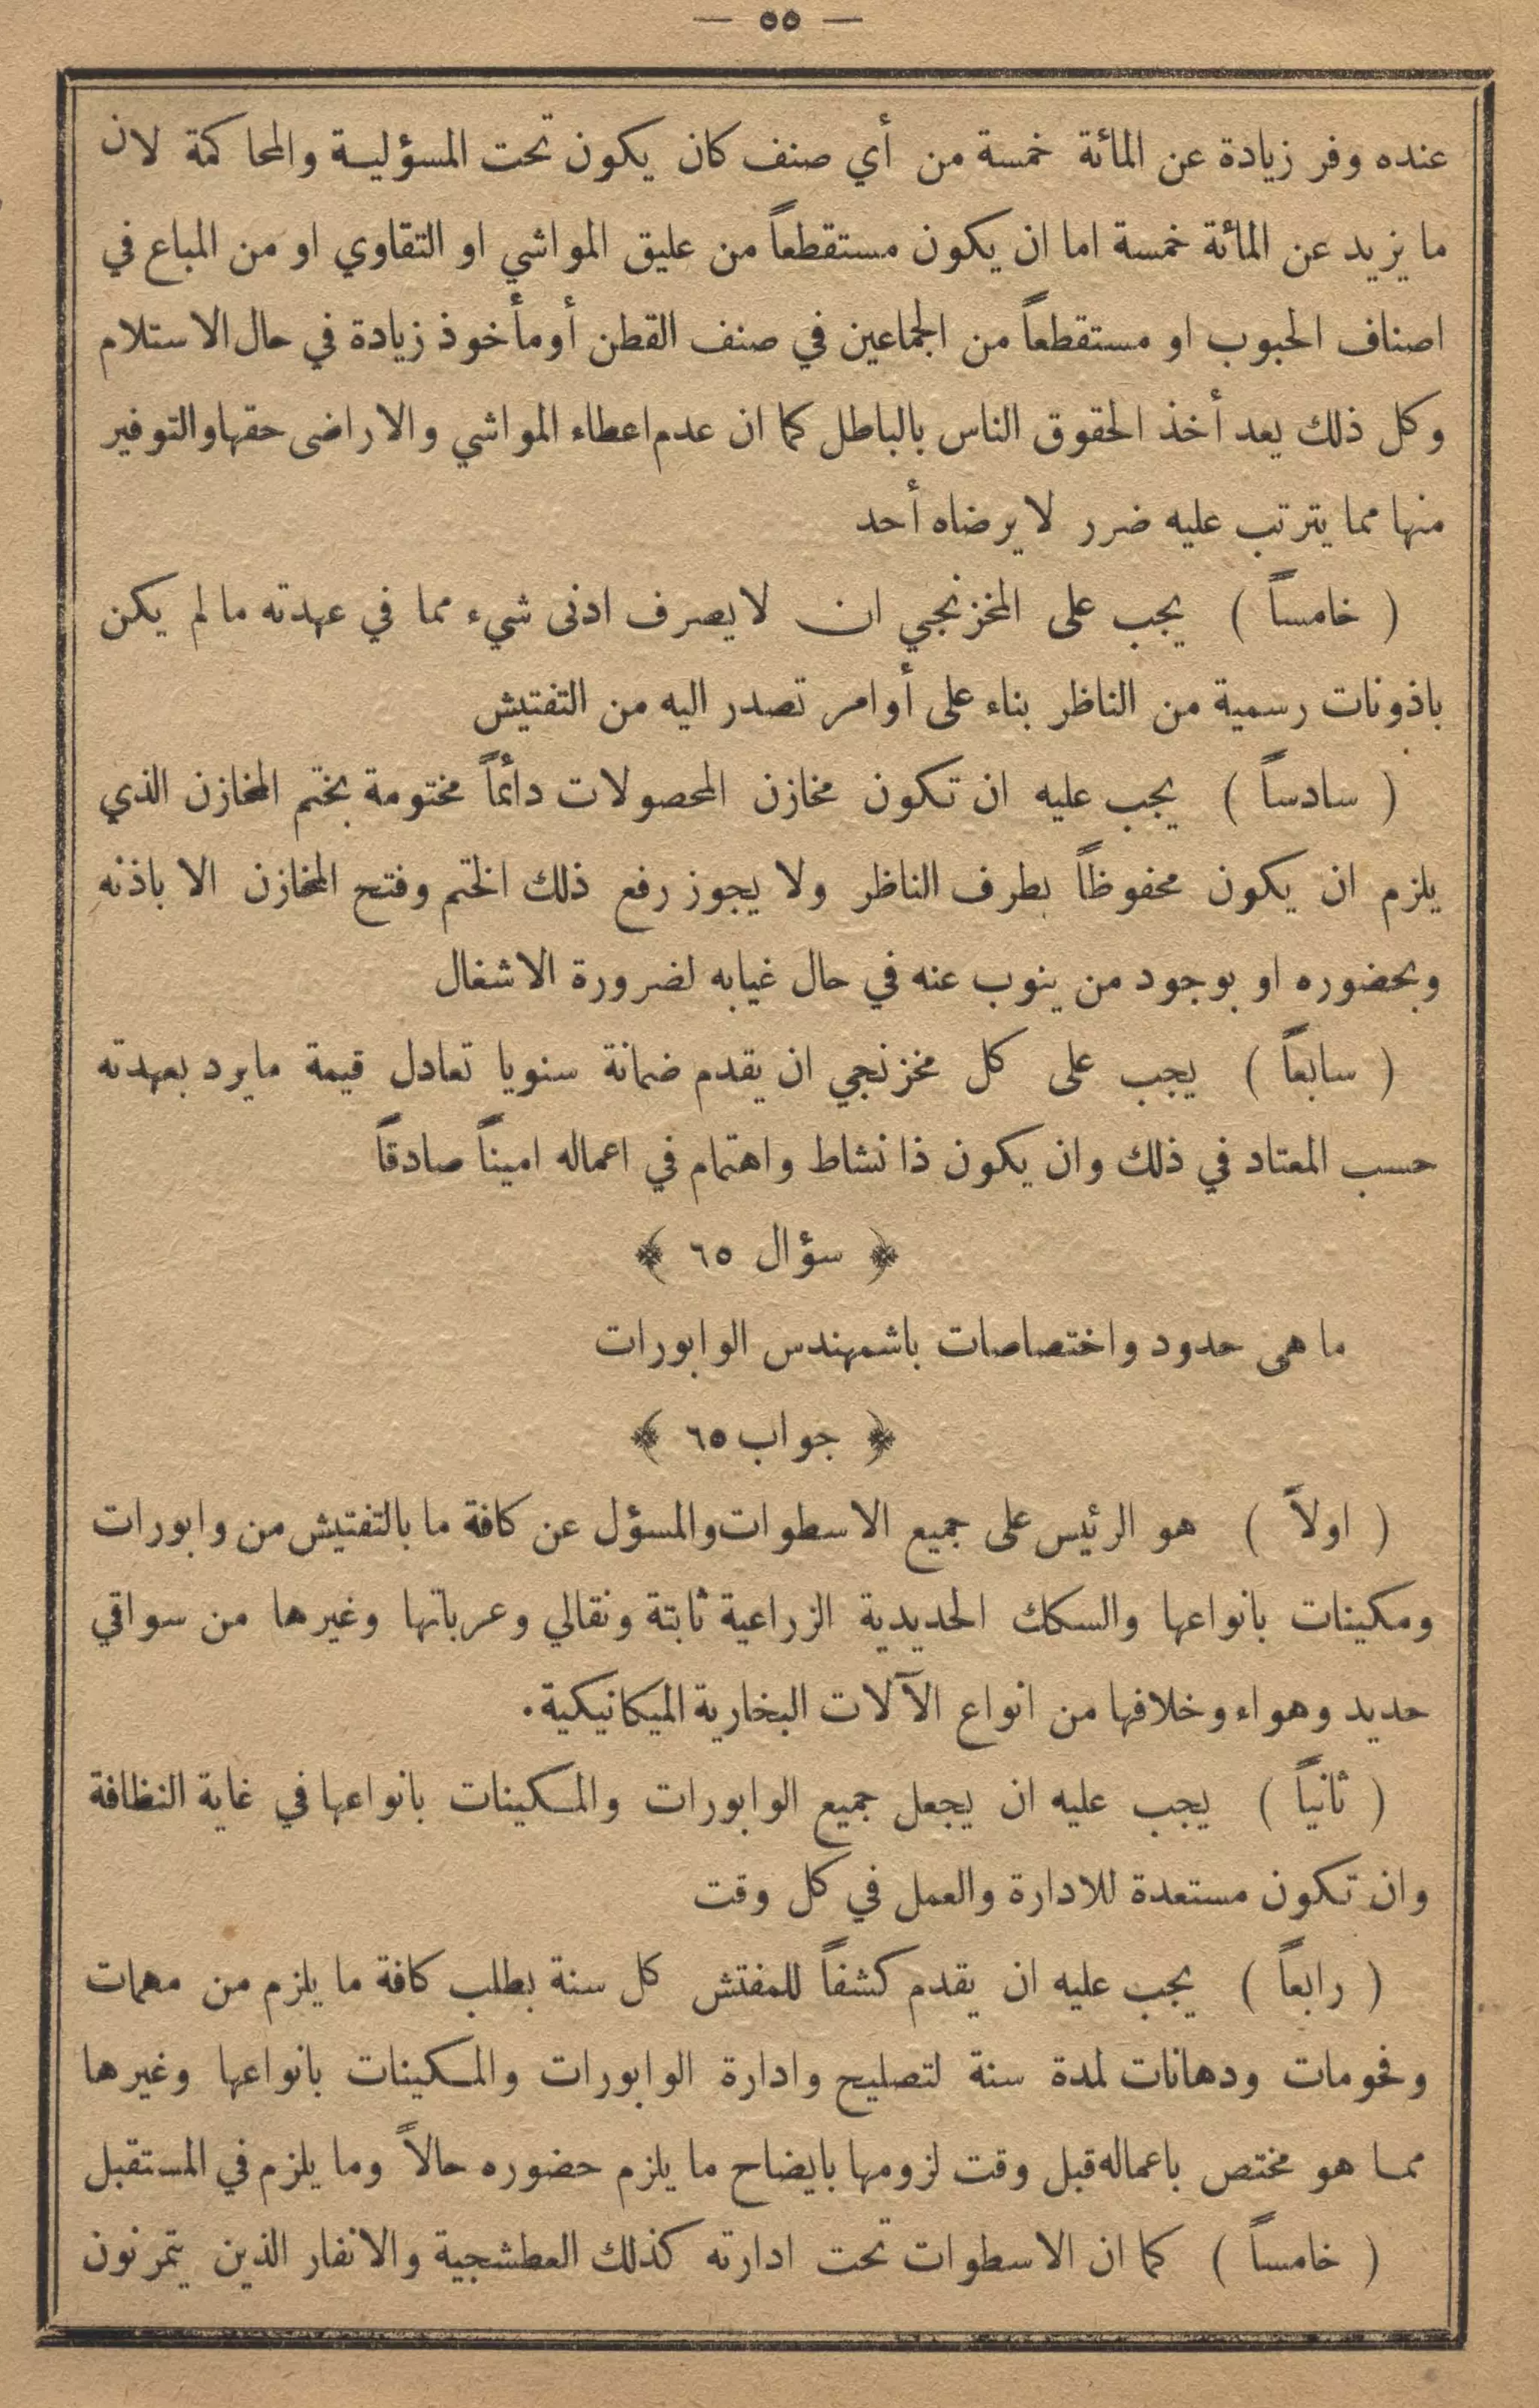 — ٥٥ —
عنده وفر زيادة عن المائة خمسة من أي صنف كان يكون تحت المسؤلية والمحاكمة لان
ما يزيد عن المائة خمسة اما ان يكون مستقطعاً من عليق المواشي او التقاوي او من المباع في
اصناف الحبوب او مستقطعاً من الجماعين في صنف القطن أومأخوذ زيادة في حال الاستلام
وكل ذلك يعد أخذ الحقوق الناس بالباطل كما ان عدم اعطاء المواشي والاراضى حقها والتوفير
منها مما يترتب عليه ضرر لا يرضاه أحد
( خامساً ) يجب على المخزنجي ان لا يصرف ادنى شيء مما في عهدته ما لم يكن
باذونات رسمية من الناظر بناء على أوامر تصدر اليه من التفتيش
( سادساً ) يجب عليه ان تكون مخازن المحصولات دائماً مختومة بختم المخازن الذي
يلزم ان يكون محفوظاً بطرف الناظر ولا يجوز رفع ذلك الختم وفتح المخازن الا باذنه
وبحضوره او بوجود من ينوب عنه في حال غيابه لضرورة الاشغال
( سابعاً ) يجب على كل مخزنجي ان يقدم ضمانة سنويا تعادل قيمة ما يرد بعهدته
حسب المعتاد في ذلك وان يكون ذا نشاط واهتمام في اعماله اميناً صادقاً
﴿ سؤال ٦٥ ﴾
ما هى حدود واختصاصات باشمهندس الوابورات
﴿ جواب ٦٥ ﴾
( اولاً ) هو الرئيس على جميع الاسطوات والمسؤل عن كافة ما بالتفتيش من وابورات
ومكينات بانواعها والسكك الحديدية الزراعية ثابتة ونقالي وعرباتها وغيرها من سواقي
حديد وهواء وخلافها من انواع الآلات البخارية الميكانيكية.
( ثانياً ) يجب عليه ان يجعل جميع الوابورات والمكينات بانواعها في غاية النظافة
وان تكون مستعدة للادارة والعمل في كل وقت
( رابعاً ) يجب عليه ان يقدم كشفاً للمفتش كل سنة بطلب كافة ما يلزم من مهمات
وفحومات ودهانات لمدة سنة لتصليح وادارة الوابورات والمكينات بانواعها وغيرها
مما هو مختص باعماله قبل وقت لزومها بايضاح ما يلزم حضوره حالاً وما يلزم في المستقبل
( خامساً ) كما ان الاسطوات تحت ادارته كذلك العطشجية والانفار الذين يتمرنون